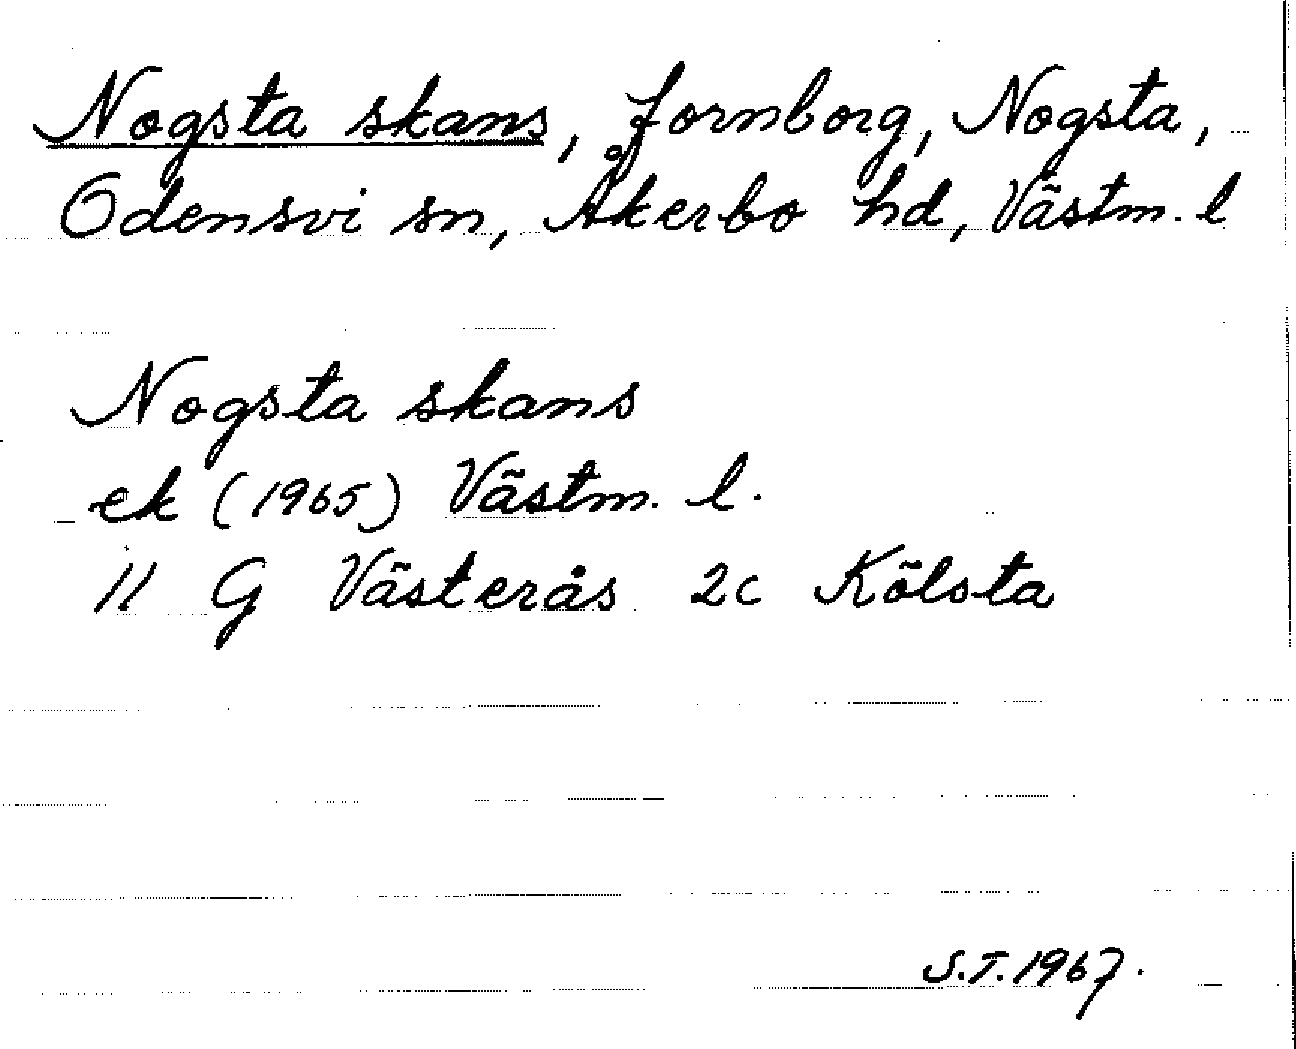 Nogsta skans, fornborg, Nogsta,
Odensvi sn, Åkerbo hd, Västm. l
Nogsta skans
ek (1965) Västm. l.
11 G Västerås 2c Kölsta
S.T. 1967.